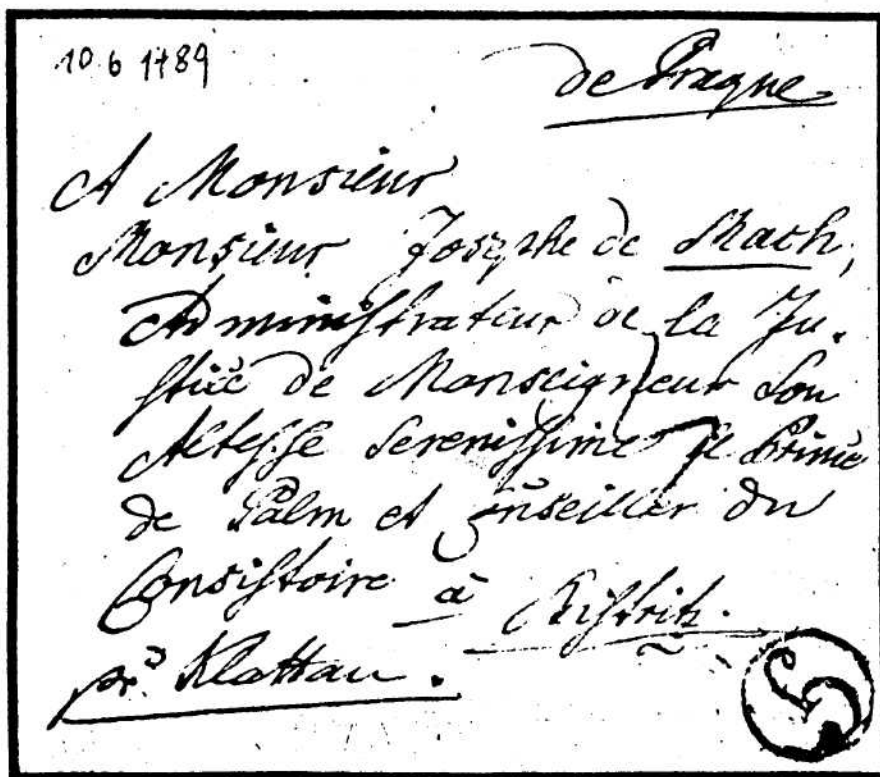 10 6 1789
de Prague
A Monsieur
Monsieur Josephe de Mach,
Administrateur de la Ju-
stice de Monseigneur Son
Altesse Serenissime le Prince
de Palm et Conseiller du
Consistoire à Bistritz.
pr Klattau.